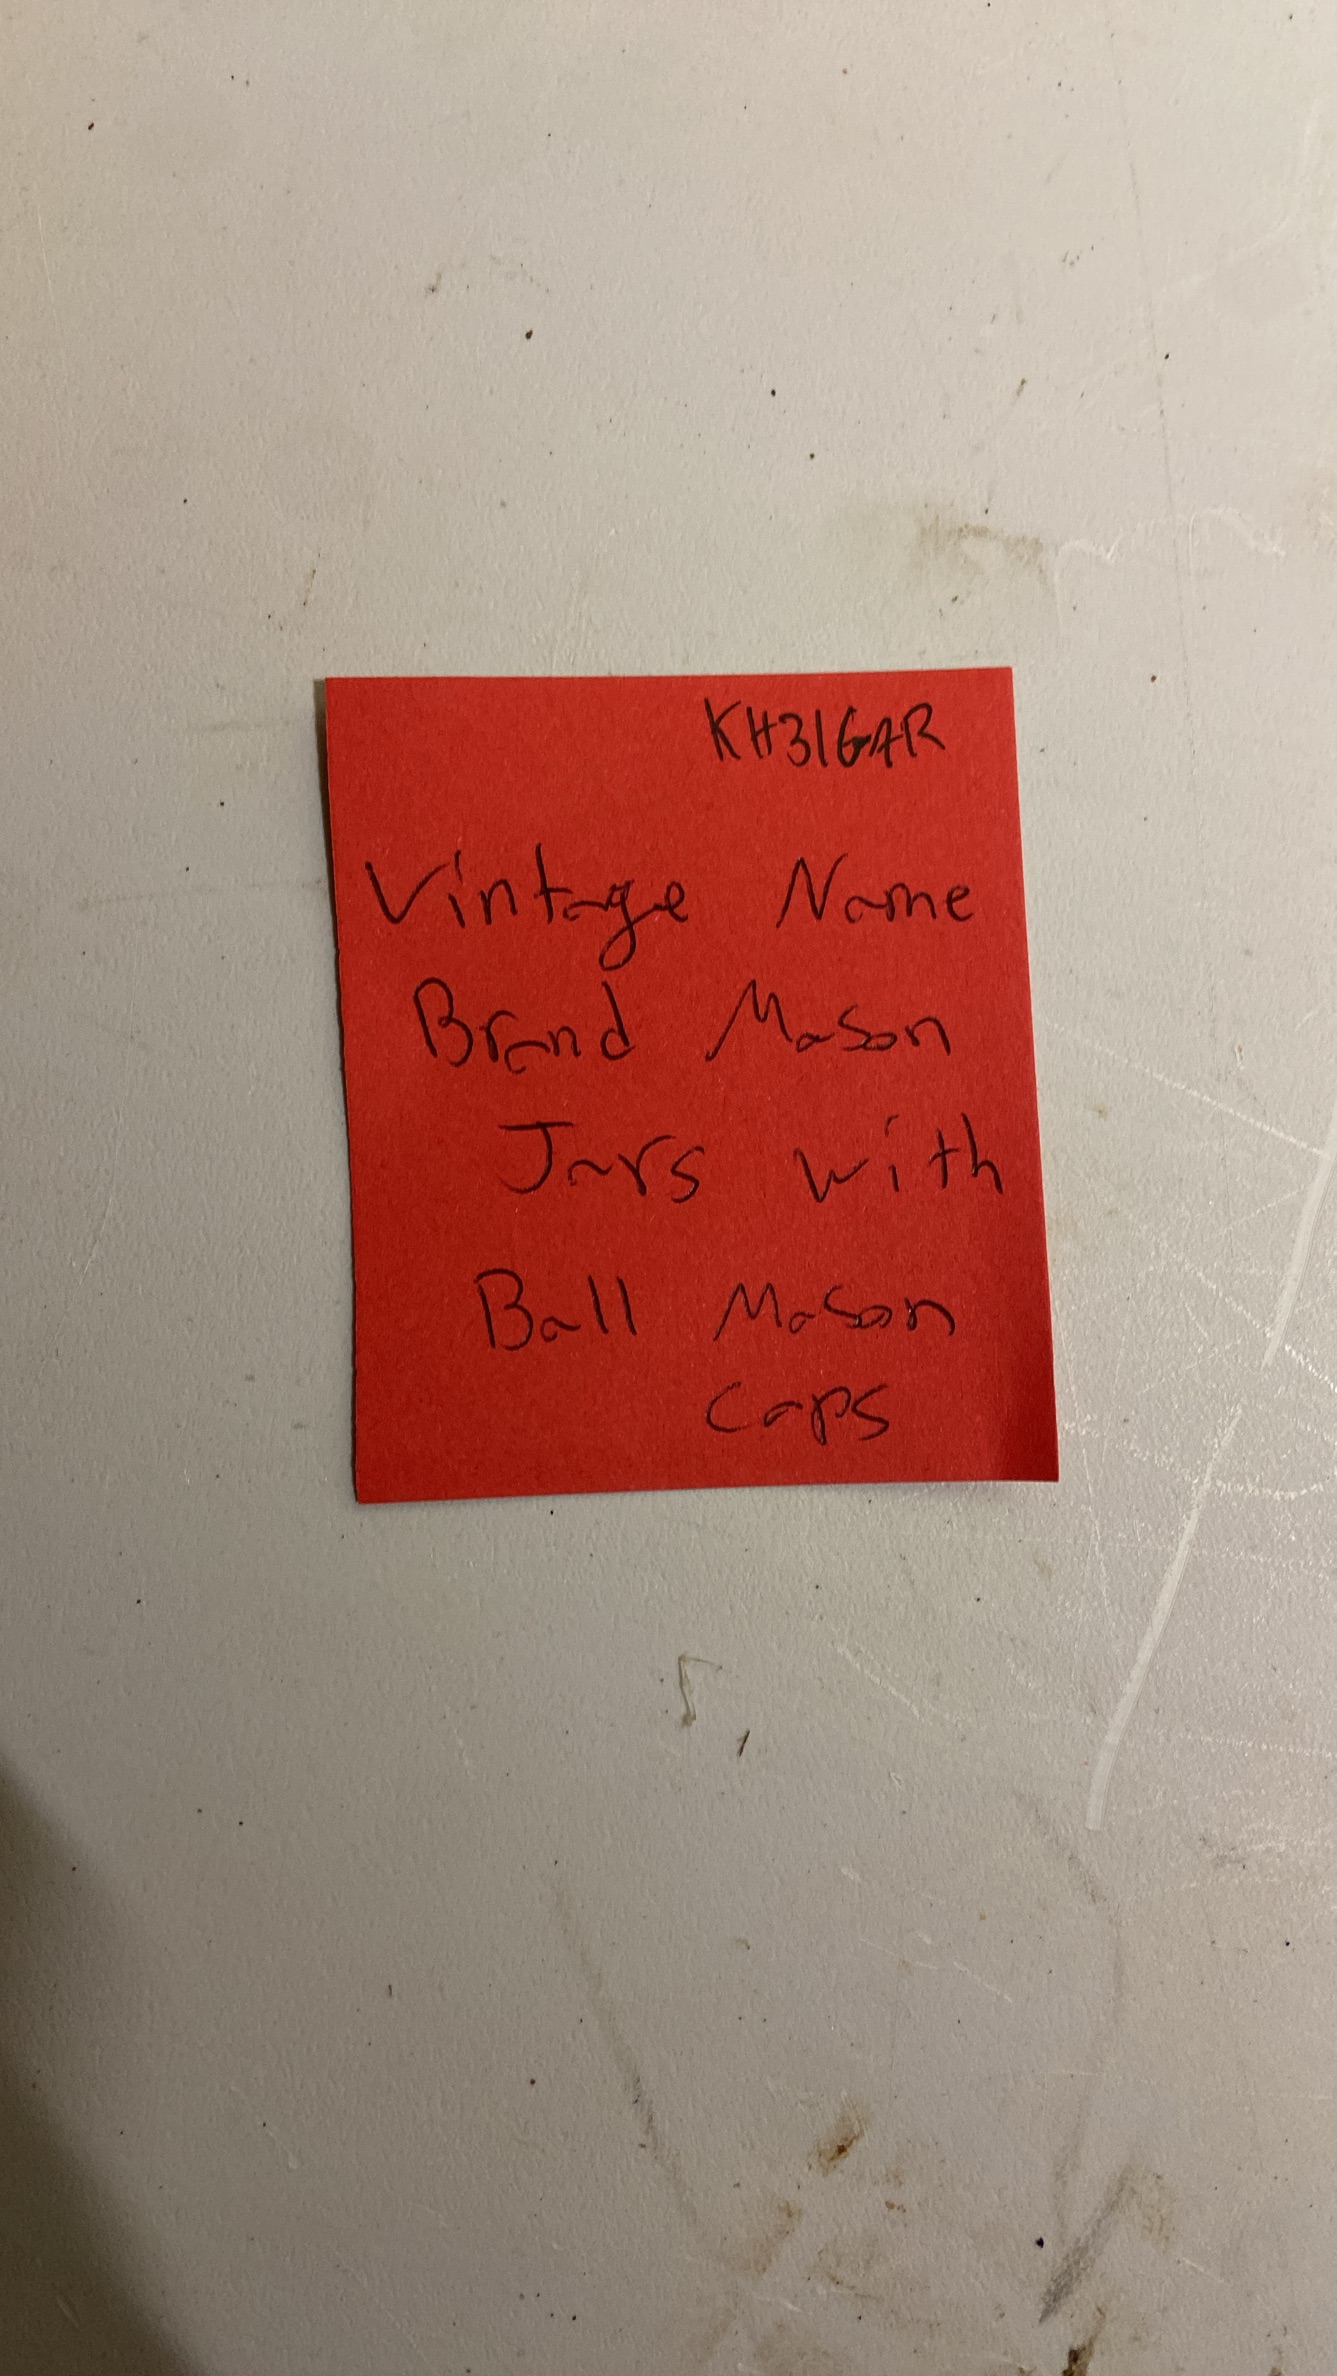 KH31GAR
Vintage Name
Brand Mason
Jars with
Ball Mason
Caps